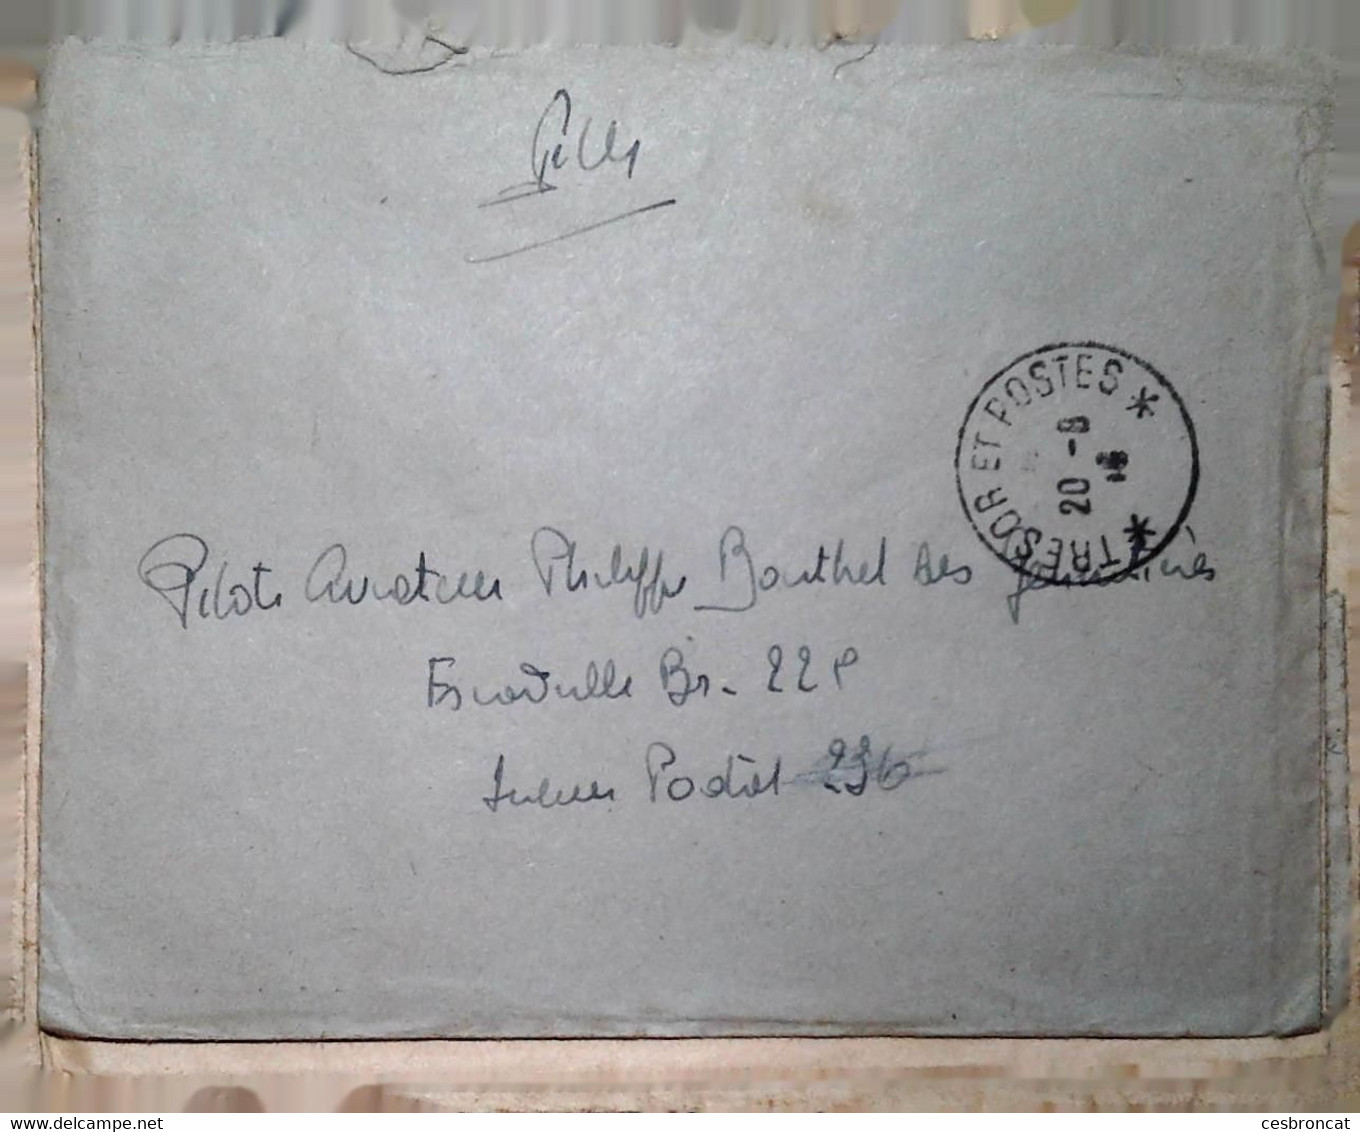 TRESOR ET POSTES
20 -8
18
Pilote Aviateur Philippe Bouthet des Gennetières
Escadrille Br. 227
Secteur Postal 236
www.delcampe.net
cesbroncat